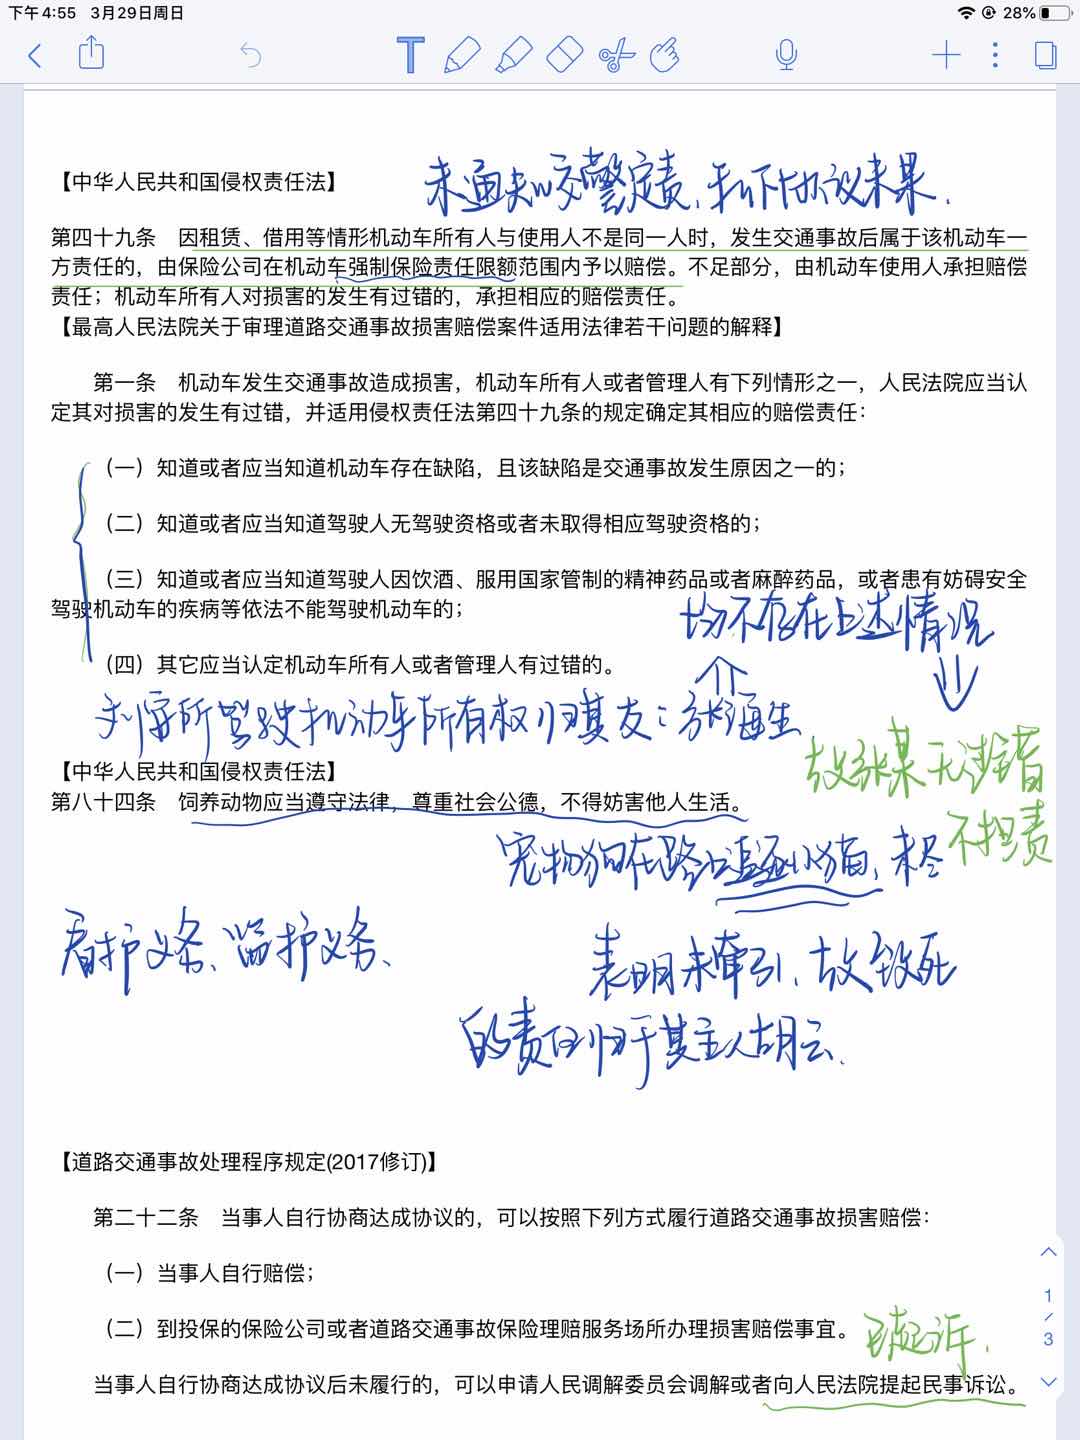 下午4:55 3月29日周日 28%
T
【中华人民共和国侵权责任法】
未通知交警定责、私下协议未果.
第四十九条 因租赁、借用等情形机动车所有人与使用人不是同一人时，发生交通事故后属于该机动车一
方责任的，由保险公司在机动车强制保险责任限额范围内予以赔偿。不足部分，由机动车使用人承担赔偿
责任；机动车所有人对损害的发生有过错的，承担相应的赔偿责任。
【最高人民法院关于审理道路交通事故损害赔偿案件适用法律若干问题的解释】
第一条 机动车发生交通事故造成损害，机动车所有人或者管理人有下列情形之一，人民法院应当认
定其对损害的发生有过错，并适用侵权责任法第四十九条的规定确定其相应的赔偿责任：
（一）知道或者应当知道机动车存在缺陷，且该缺陷是交通事故发生原因之一的；
（二）知道或者应当知道驾驶人无驾驶资格或者未取得相应驾驶资格的；
（三）知道或者应当知道驾驶人因饮酒、服用国家管制的精神药品或者麻醉药品，或者患有妨碍安全
驾驶机动车的疾病等依法不能驾驶机动车的；
均不存在上述情况
（四）其它应当认定机动车所有人或者管理人有过错的。
所驾驶机动车所有权归其友：张海生
故张某无涉错
不担责
【中华人民共和国侵权责任法】
第八十四条 饲养动物应当遵守法律，尊重社会公德，不得妨害他人生活。
宠物狗在路口追逐小猫，未尽
看护义务、监护义务、
表明未牵引、故致死
的责任归于其主人胡云.
【道路交通事故处理程序规定(2017修订)】
第二十二条 当事人自行协商达成协议的，可以按照下列方式履行道路交通事故损害赔偿：
（一）当事人自行赔偿；
（二）到投保的保险公司或者道路交通事故保险理赔服务场所办理损害赔偿事宜。
已起诉.
当事人自行协商达成协议后未履行的，可以申请人民调解委员会调解或者向人民法院提起民事诉讼。
1
/
3